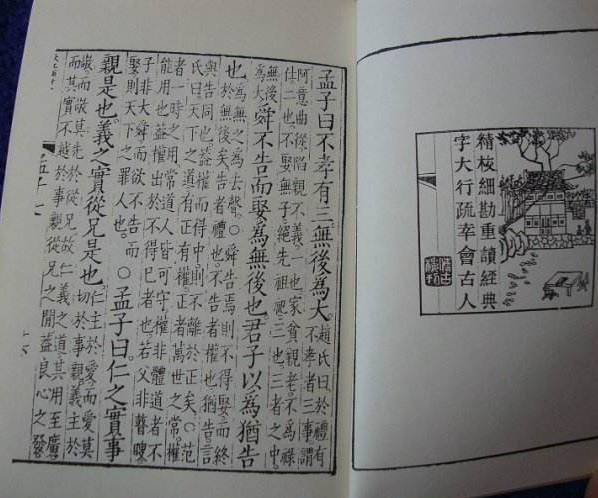 精校細勘重讀經典
字大行疏幸會古人
孟子曰不孝有三無後為大
趙氏曰於禮有
不孝者三事謂
阿意曲從陷親不義一也家貧親老不為祿
仕二也不娶無子絕先祖祀三也三者之中
無後
為大
舜不告而娶為無後也君子以為猶告
也
為無之為去聲○舜告焉則不得娶而終
於無後矣告者禮也不告者權也猶告言
與告同也蓋權而得中則不離於正矣○范
氏曰天下之道有正有權正者萬世之常權
者一時之用常道人皆可守權非體道者不
能用也蓋權出於不得已者也若父非瞽瞍
子非大舜而欲不告而
娶則天下之罪人也
○孟子曰仁之實事
親是也義之實從兄是也
仁主於愛而愛莫
切於事親義主於
敬而敬莫先於從兄故仁義之道其用至廣
而其實不越於事親從兄之間蓋良心之發
孟子七
十六